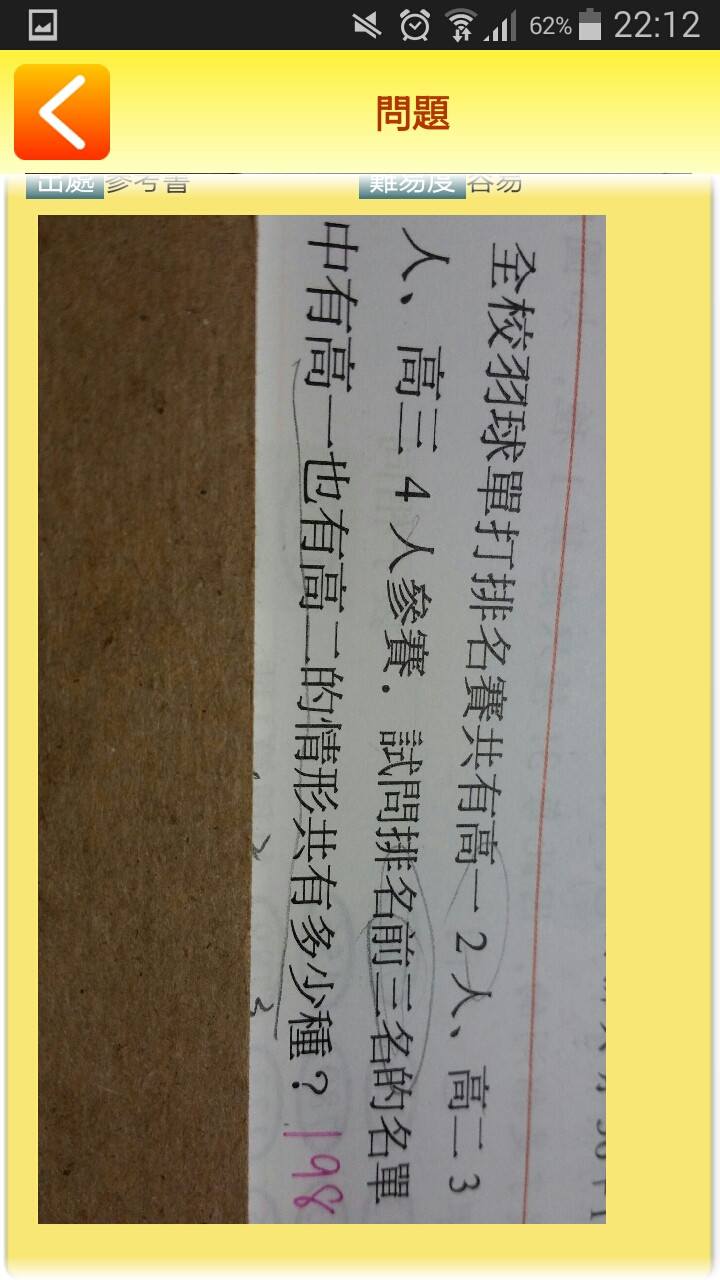 62% 22:12
問題
出處 參考書 難易度 容易
全校羽球單打排名賽共有高一 2 人、高二 3
人、高三 4 人參賽．試問排名前三名的名單
中有高一也有高二的情形共有多少種？ 198